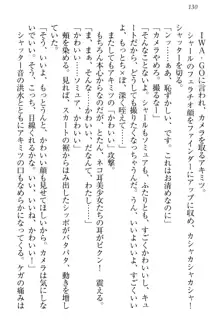 130
IWA・GOに言われ、カメラを取るアキミツ。
シャールのフェラチオ顔をファインダーにアップでとらえ、
シャッターを切る。
カシャカシャカシャ！
「そんなことっ、あぁ、恥ずかしい」
「カメラやめろ、撮るなーっ」
「かわいいよ、シャールもソミュアも、ふたりとも、すごくかわいくて、
もっともっと、どんどん撮りたくなっちゃうんだ。
もっとち×ぽ、深く咥えて……」
執拗にかわいい攻撃。ネコ耳美少女たちの耳がピクピク！　震える。
「かわいい！　かわいい！　かわいい、すごくかわいい、キュートだよ、
かわいいよソミュア、かわいいかわいい、シャール！」
頬を染めるふたり。スカートの裾からはみ出したシッポがパタパタ動きを増
す。
「いいよ、もっとうんとかわいい顔も撮らせて！　すごくかわいいから！
そう、そこっ、こっち、目線くれるかな？　かわいい！」
シャッター音の洪水とともにアキミツの口もなめらかになる。ケガの痛みは